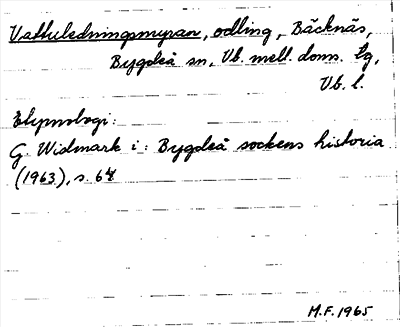 Vattuledningsmyran, odling, Bäcknäs,
Bygdeå sn, Vb. mell. doms. tg,
Vb. l.
Etymologi:
G. Widmark i: Bygdeå sockens historia
(1963), s. 67
M.F. 1965